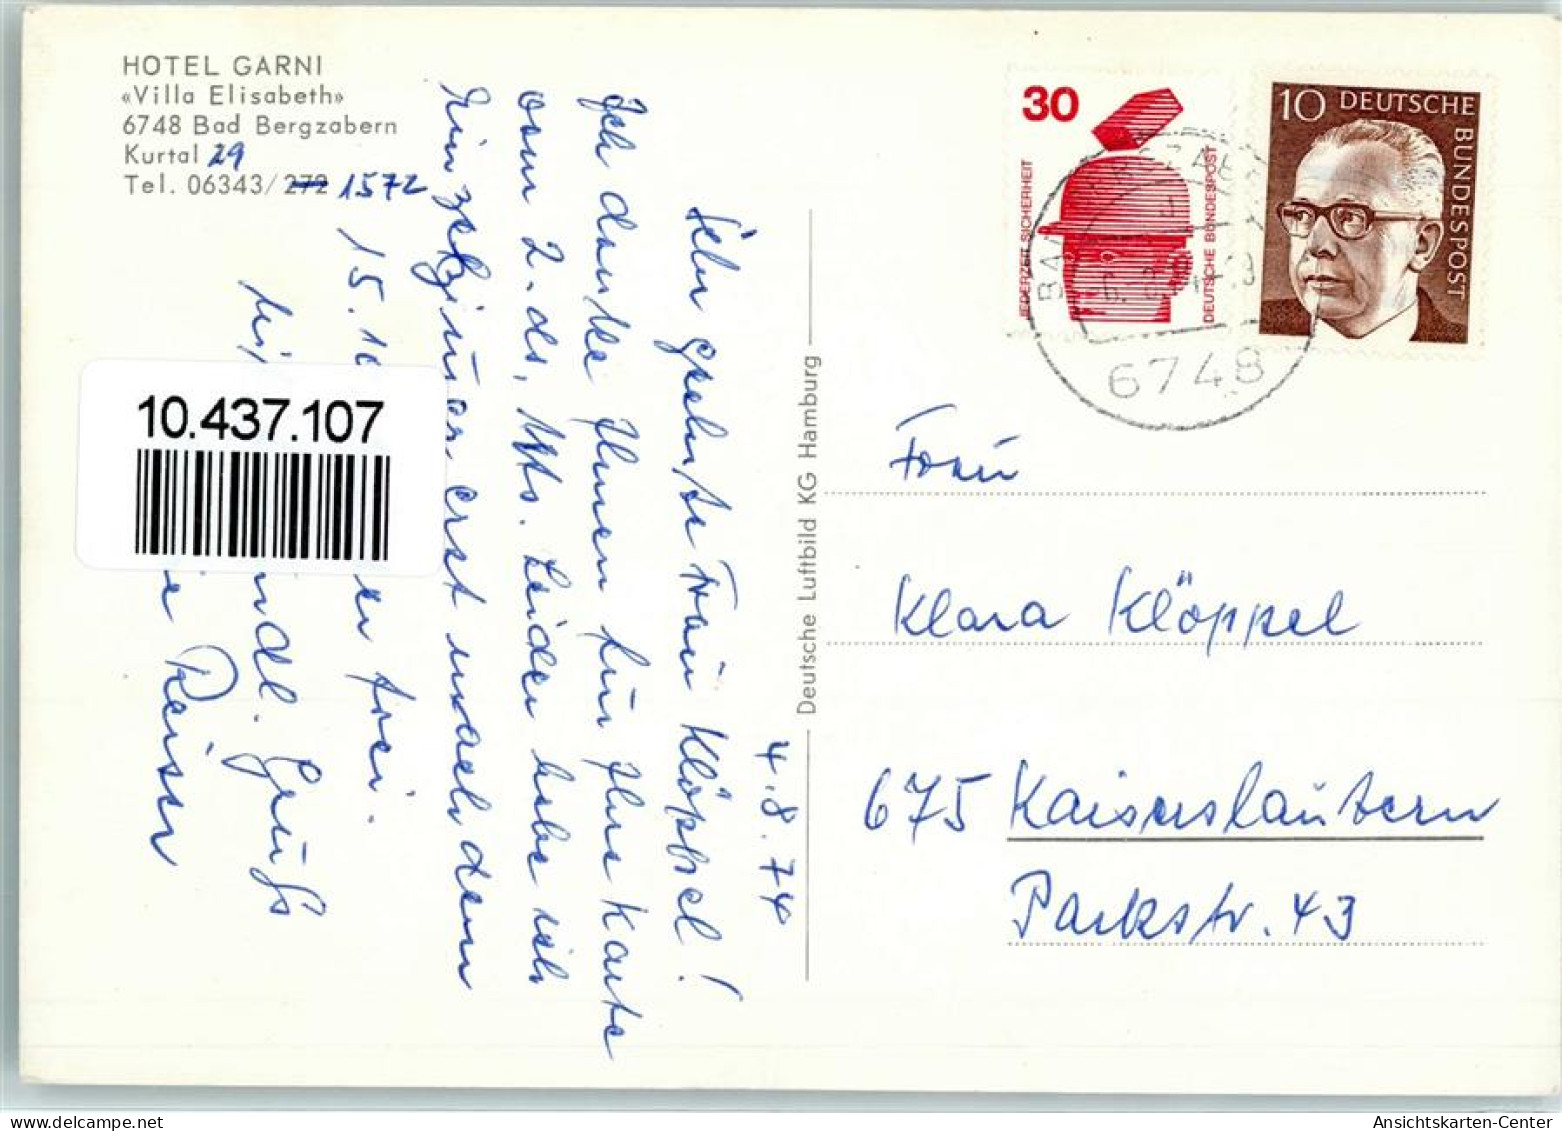 HOTEL GARNI
«Villa Elisabeth»
6748 Bad Bergzabern
Kurtal 29
Tel. 06343/272 1572
4.8.74
Sehr geehrte Frau Klöppel!
Ich danke Ihnen für Ihre Karte
vom 2. ds. Mts. Leider habe ich
Einzelzimmer erst nach dem
15.10 frei.
freundl. Gruß
Reiser
10.437.107
Deutsche Luftbild KG Hamburg
30
JEDERZEIT SICHERHEIT
DEUTSCHE BUNDESPOST
10 DEUTSCHE
BUNDESPOST
6748
Frau
Klara Klöppel
675 Kaiserslautern
Parkstr. 43
delcampe.net
Ansichtskarten-Center